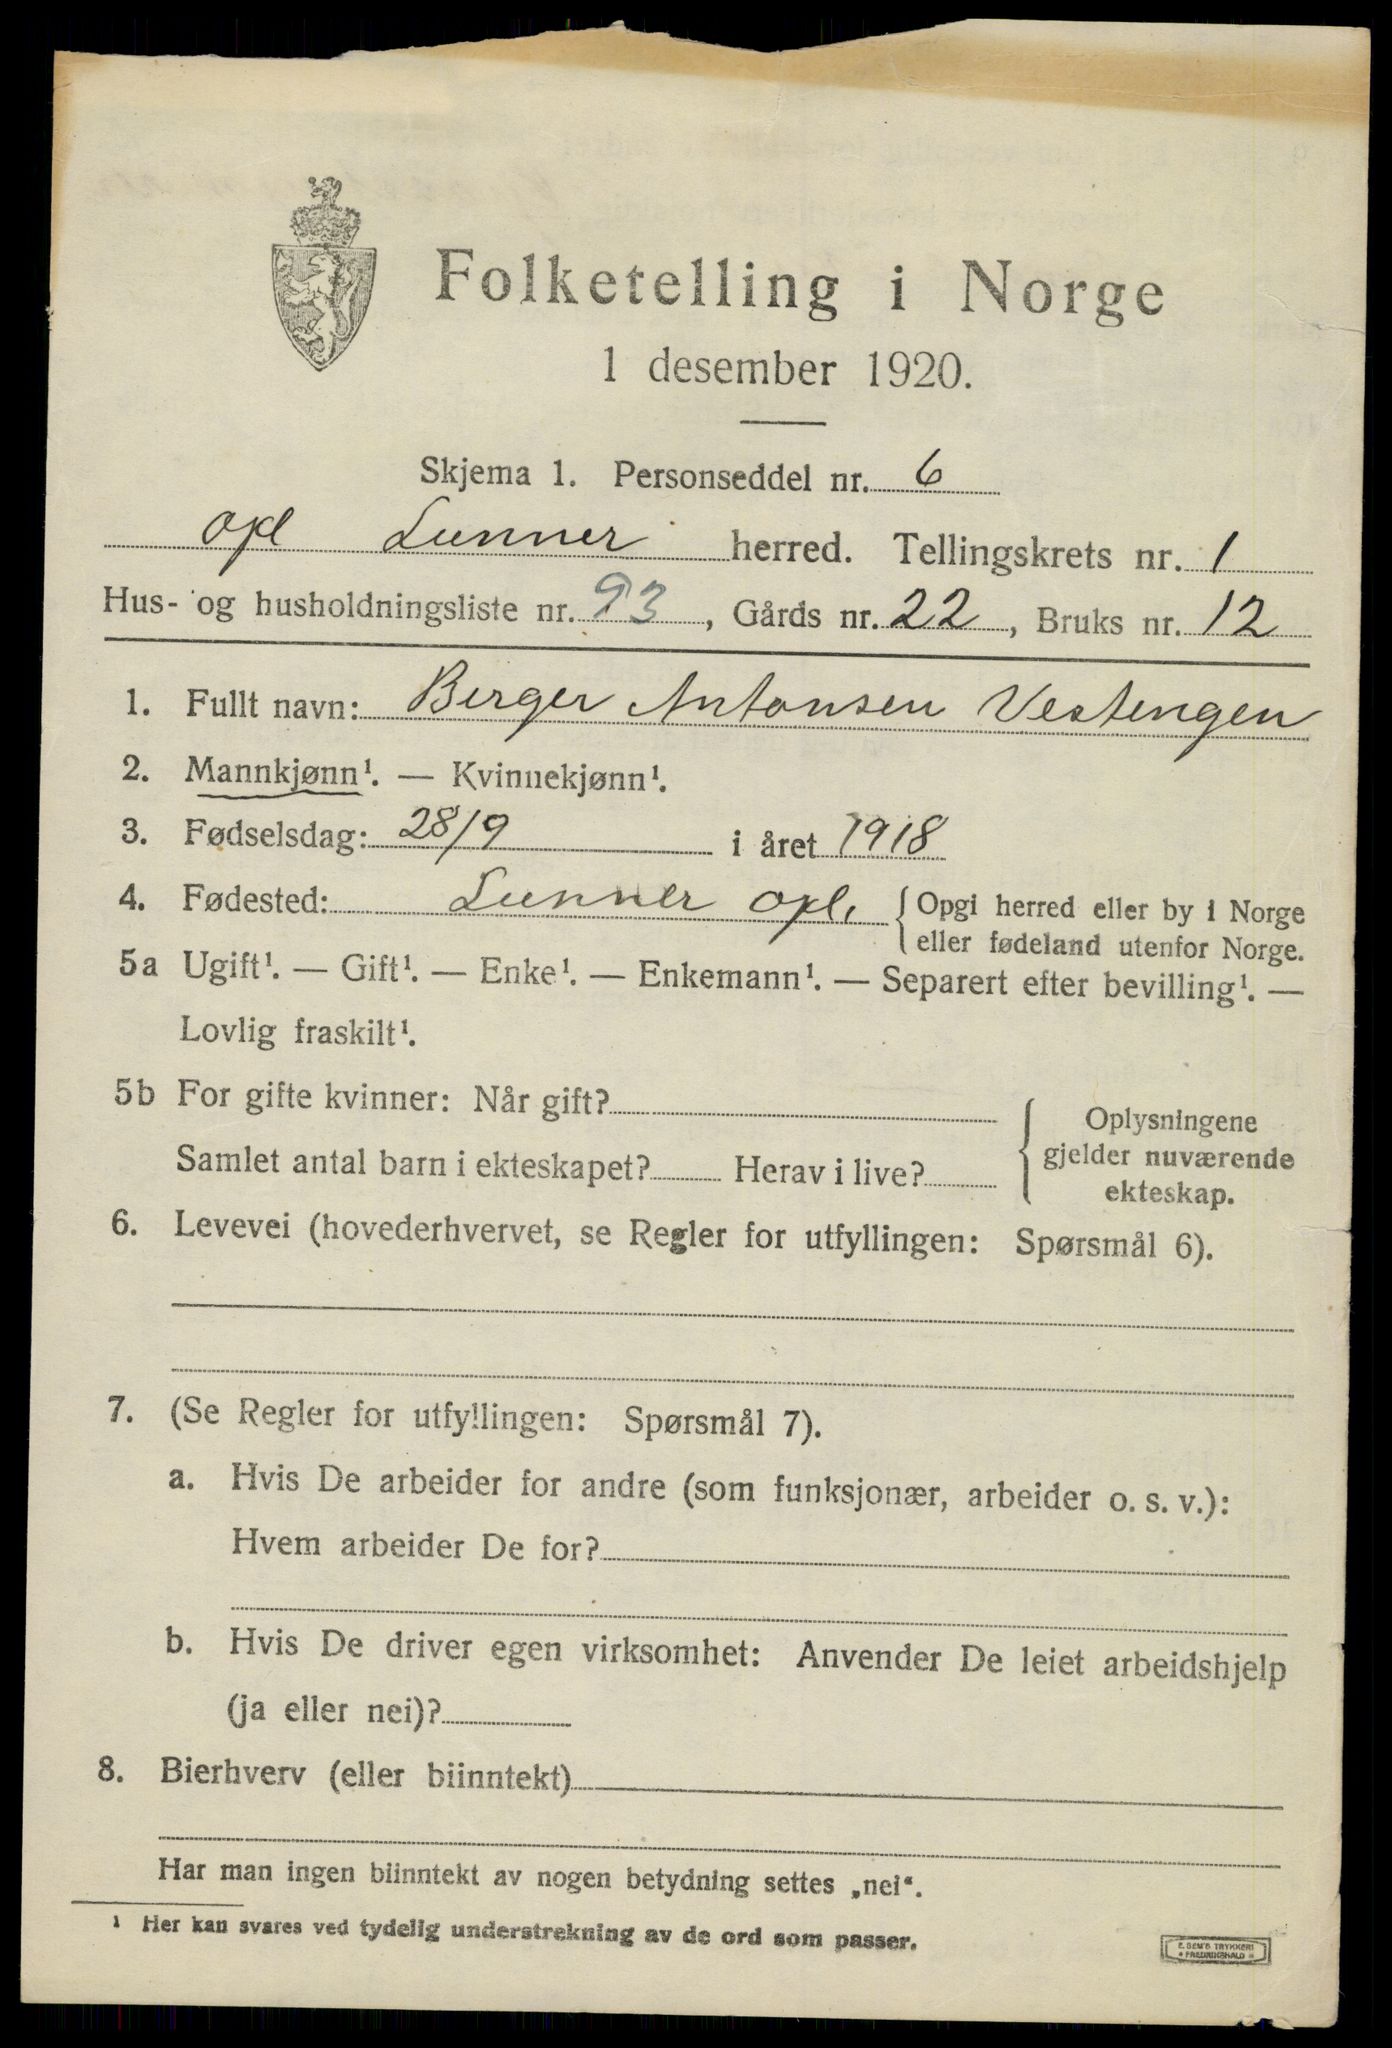 Folketelling i Norge
1 desember 1920.
Skjema 1. Personseddel nr. 6
opl Lunner herred. Tellingskrets nr. 1
Hus- og husholdningsliste nr. 93, Gårds nr. 22, Bruks nr. 12
1. Fullt navn: Berger Antonsen Vestengen
2. Mannkjønn¹. — Kvinnekjønn¹.
3. Fødselsdag: 28/9 i året 1918
4. Fødested: Lunner opl. { Opgi herred eller by i Norge
eller fødeland utenfor Norge.
5a Ugift¹. — Gift¹. — Enke¹. — Enkemann¹. — Separert efter bevilling¹. —
Lovlig fraskilt¹.
5b For gifte kvinner: Når gift?
Samlet antal barn i ekteskapet? Herav i live?
{ Oplysningene
gjelder nuværende
ekteskap.
6. Levevei (hovederhvervet, se Regler for utfyllingen: Spørsmål 6).
7. (Se Regler for utfyllingen: Spørsmål 7).
a. Hvis De arbeider for andre (som funksjonær, arbeider o. s. v.):
Hvem arbeider De for?
b. Hvis De driver egen virksomhet: Anvender De leiet arbeidshjelp
(ja eller nei)?
8. Bierhverv (eller biinntekt)
Har man ingen biinntekt av nogen betydning settes „nei“.
¹ Her kan svares ved tydelig understrekning av de ord som passer.
E. SEM'S TRYKKERI
* FREDRIKSHALD *